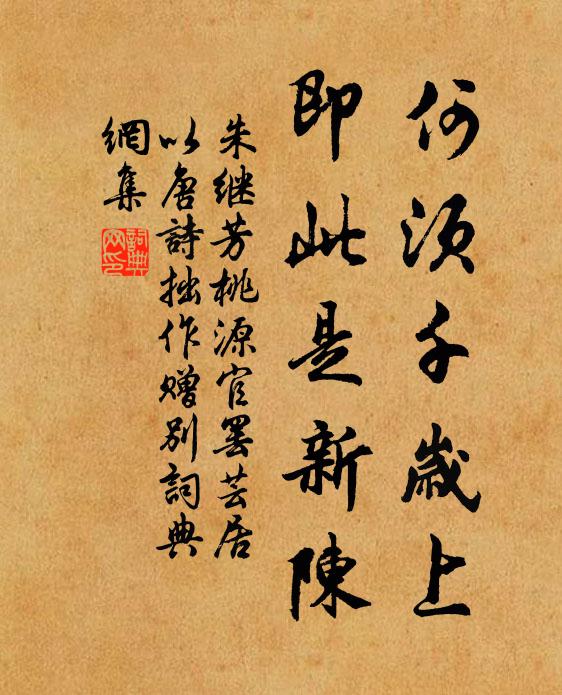 何須千歲上
即此是新陳
朱继芳桃源官罢芸居
以唐詩拙作贈别詞典
網集
詞典網印